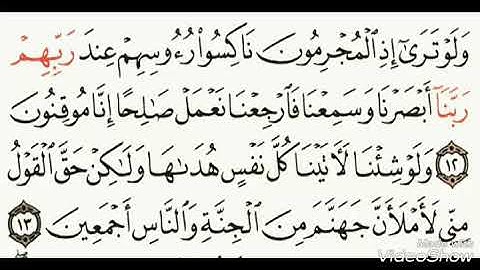 وَلَوْ تَرَىٰٓ إِذِ ٱلْمُجْرِمُونَ نَاكِسُوا۟ رُءُوسِهِمْ عِندَ رَبِّهِمْ
رَبَّنَآ أَبْصَرْنَا وَسَمِعْنَا فَٱرْجِعْنَا نَعْمَلْ صَـٰلِحًا إِنَّا مُوقِنُونَ
١٢ وَلَوْ شِئْنَا لَـَٔاتَيْنَا كُلَّ نَفْسٍ هُدَىٰهَا وَلَـٰكِنْ حَقَّ ٱلْقَوْلُ
مِنِّى لَأَمْلَأَنَّ جَهَنَّمَ مِنَ ٱلْجِنَّةِ وَٱلنَّاسِ أَجْمَعِينَ ١٣
Made with
VideoShow